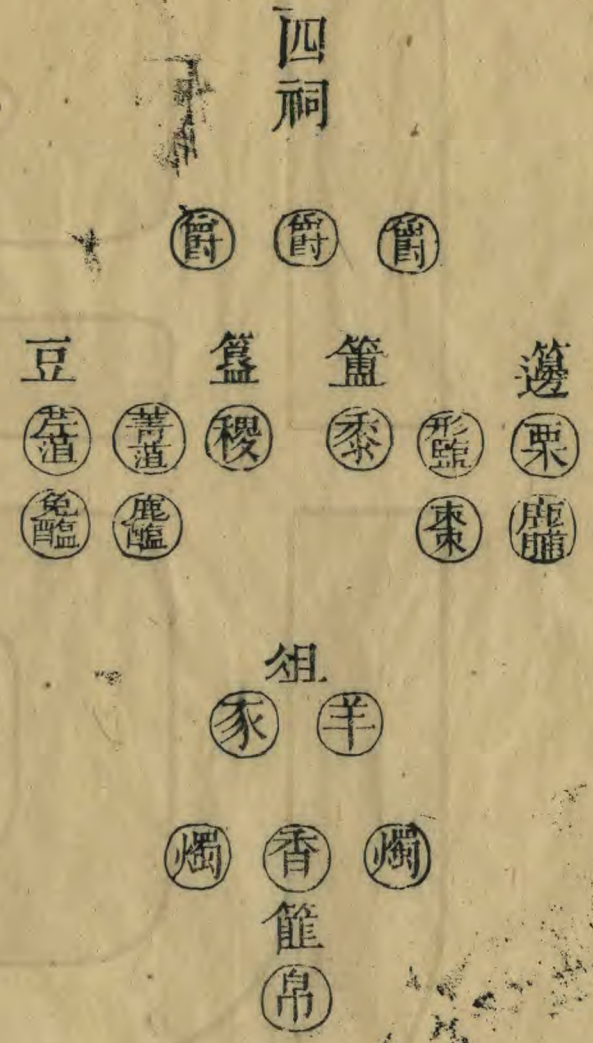 四祠
爵 爵 爵
籩 簠 簋 豆
栗 形鹽 黍 稷 菁菹 芹菹
鹿脯 棗 鹿醢 兔醢
俎
羊 豕
燭 香 燭
篚
帛